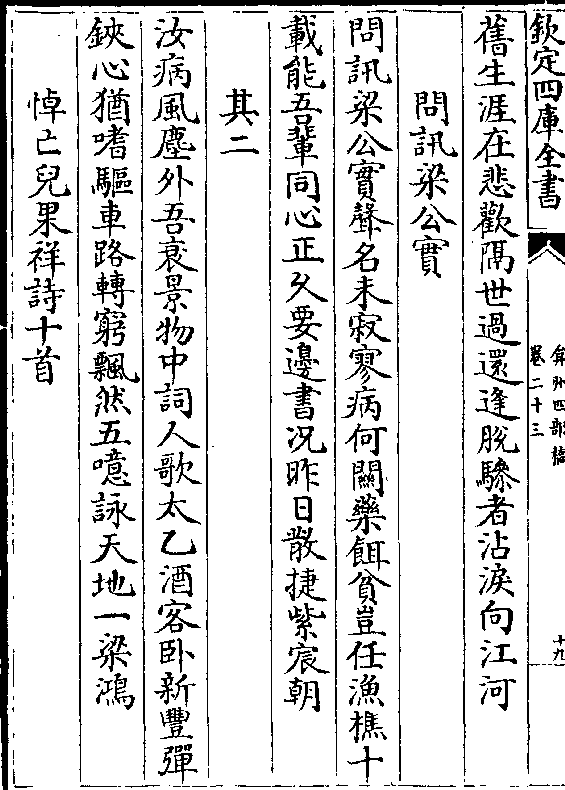 欽定四庫全書
弇州四部稿
卷二十三
十九
舊生涯在悲歡隔世過還逢脫驂者沾淚向江河
問訊梁公實
問訊梁公實聲名未寂寥病何關藥餌貧豈任漁樵十
載能吾輩同心正久要邊書况昨日散捷紫宸朝
其二
汝病風塵外吾衰景物中詞人歌太乙酒客卧新豐彈
鋏心猶嗜驅車路轉窮飄然五噫詠天地一梁鴻
悼亡兒果祥詩十首